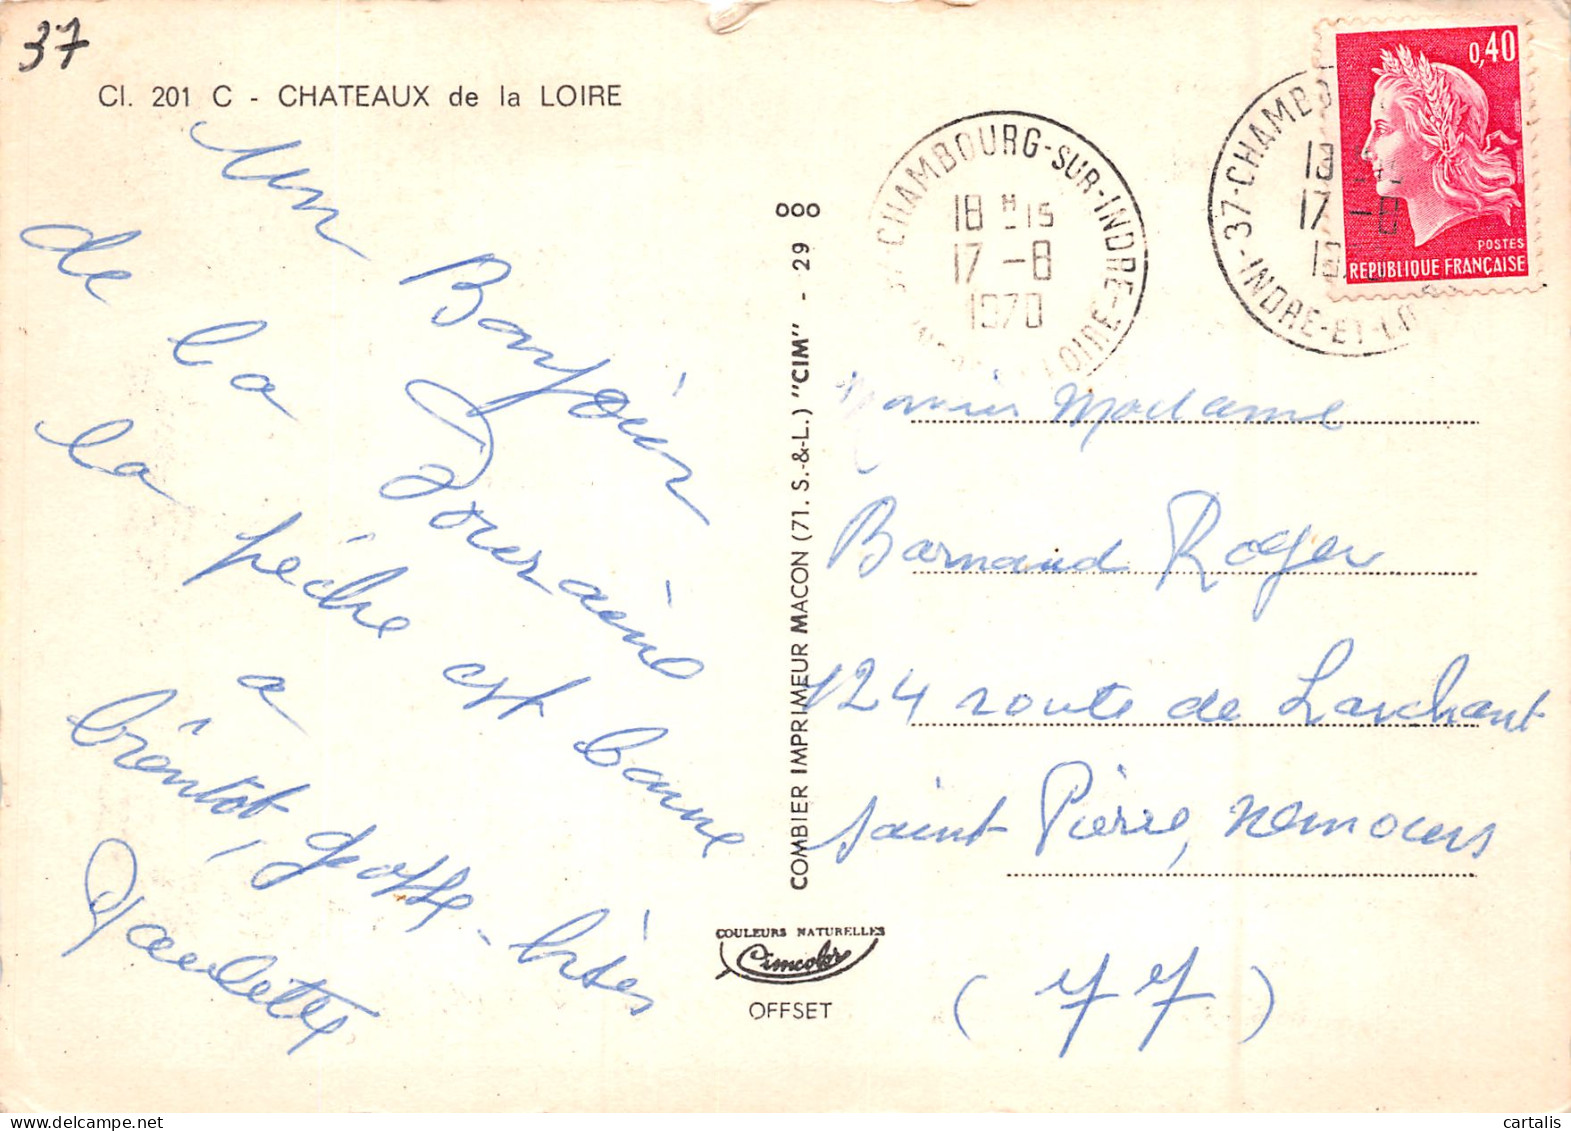 37
Cl. 201 C - CHATEAUX de la LOIRE
Un Bonjour
de la Touraine
la pêche est bonne
a
bientôt, grosses bises
Paulette
OOO
COMBIER IMPRIMEUR MACON (71. S.-&-L.) "CIM" - 29
COULEURS NATURELLES
Cimcolor
OFFSET
37-CHAMBOURG-SUR-INDRE-
INDRE-ET-LOIRE-
18 H 15
17 -8
1970
37-CHAMBO
INDRE-ET-LO
18
17 -8
19
0,40
POSTES
REPUBLIQUE FRANÇAISE
Madame
Barnaud Roger
124 route de Larchant
Saint Pierre, Nemours
(77)
cartalis